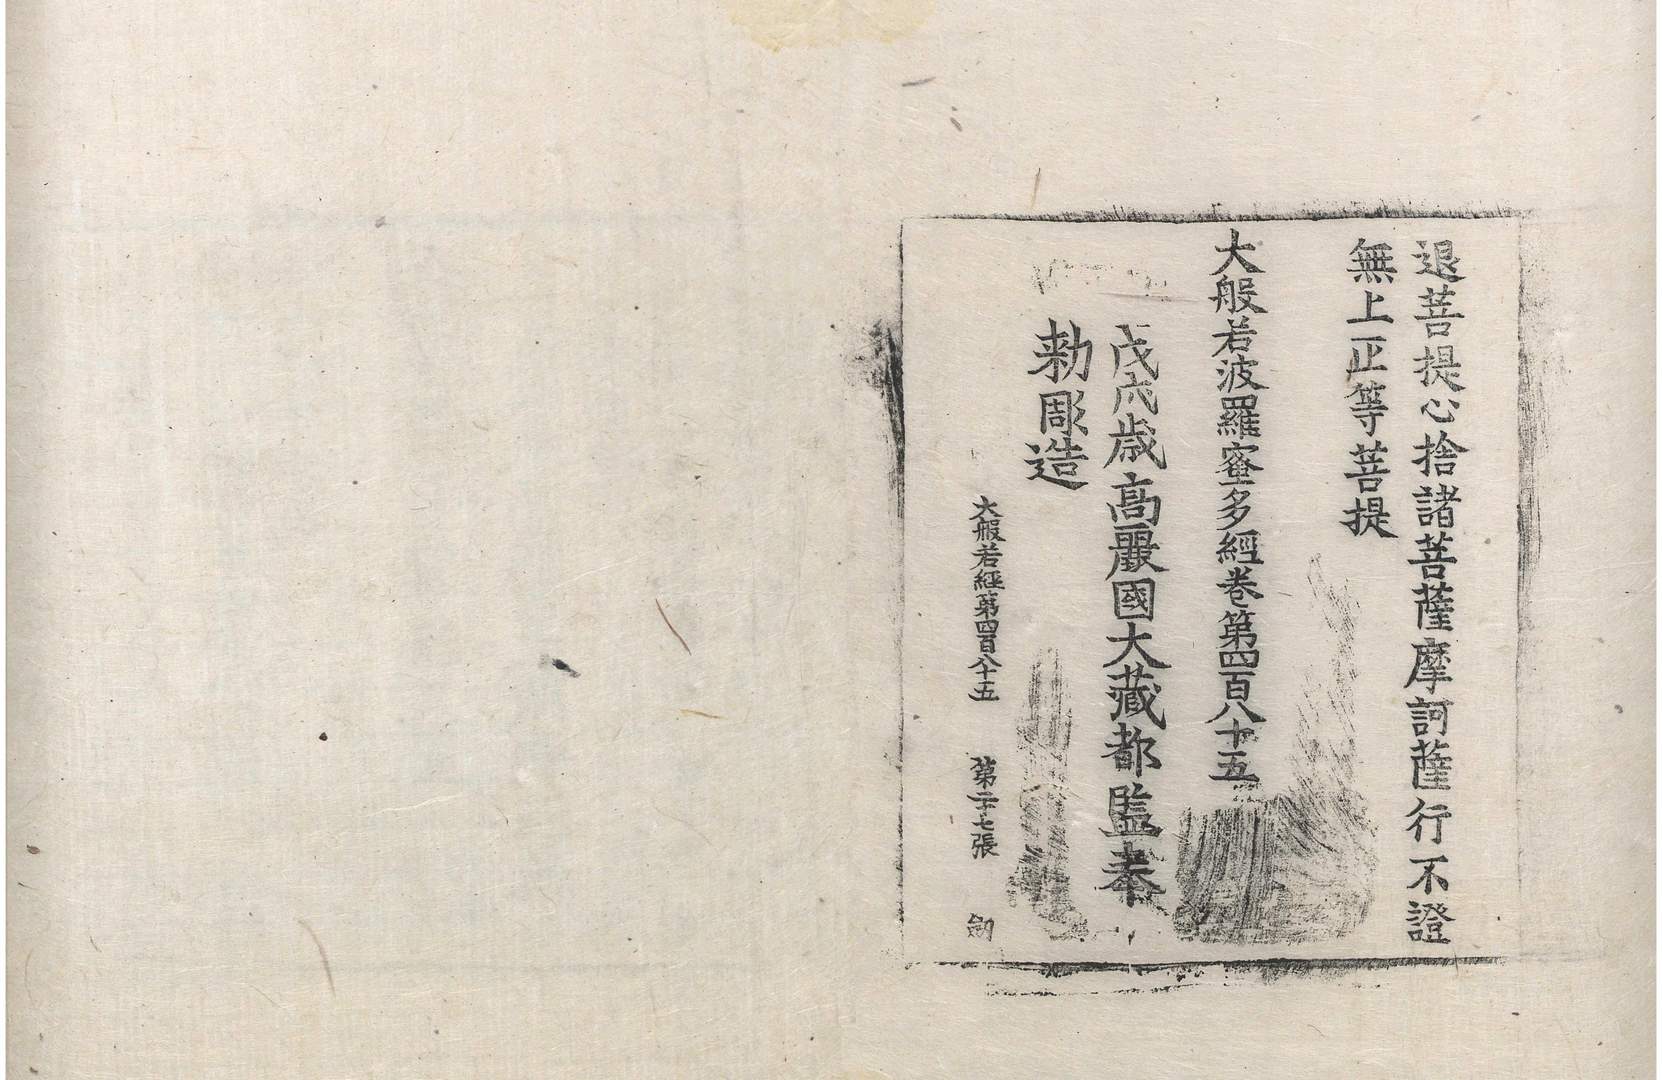 退菩提心捨諸菩薩摩訶薩行不證
無上正等菩提
大般若波羅蜜多經卷第四百八十五
戊戌歲高麗國大藏都監奉
勅彫造
大般若經第四百八十五 第二十七張 劒